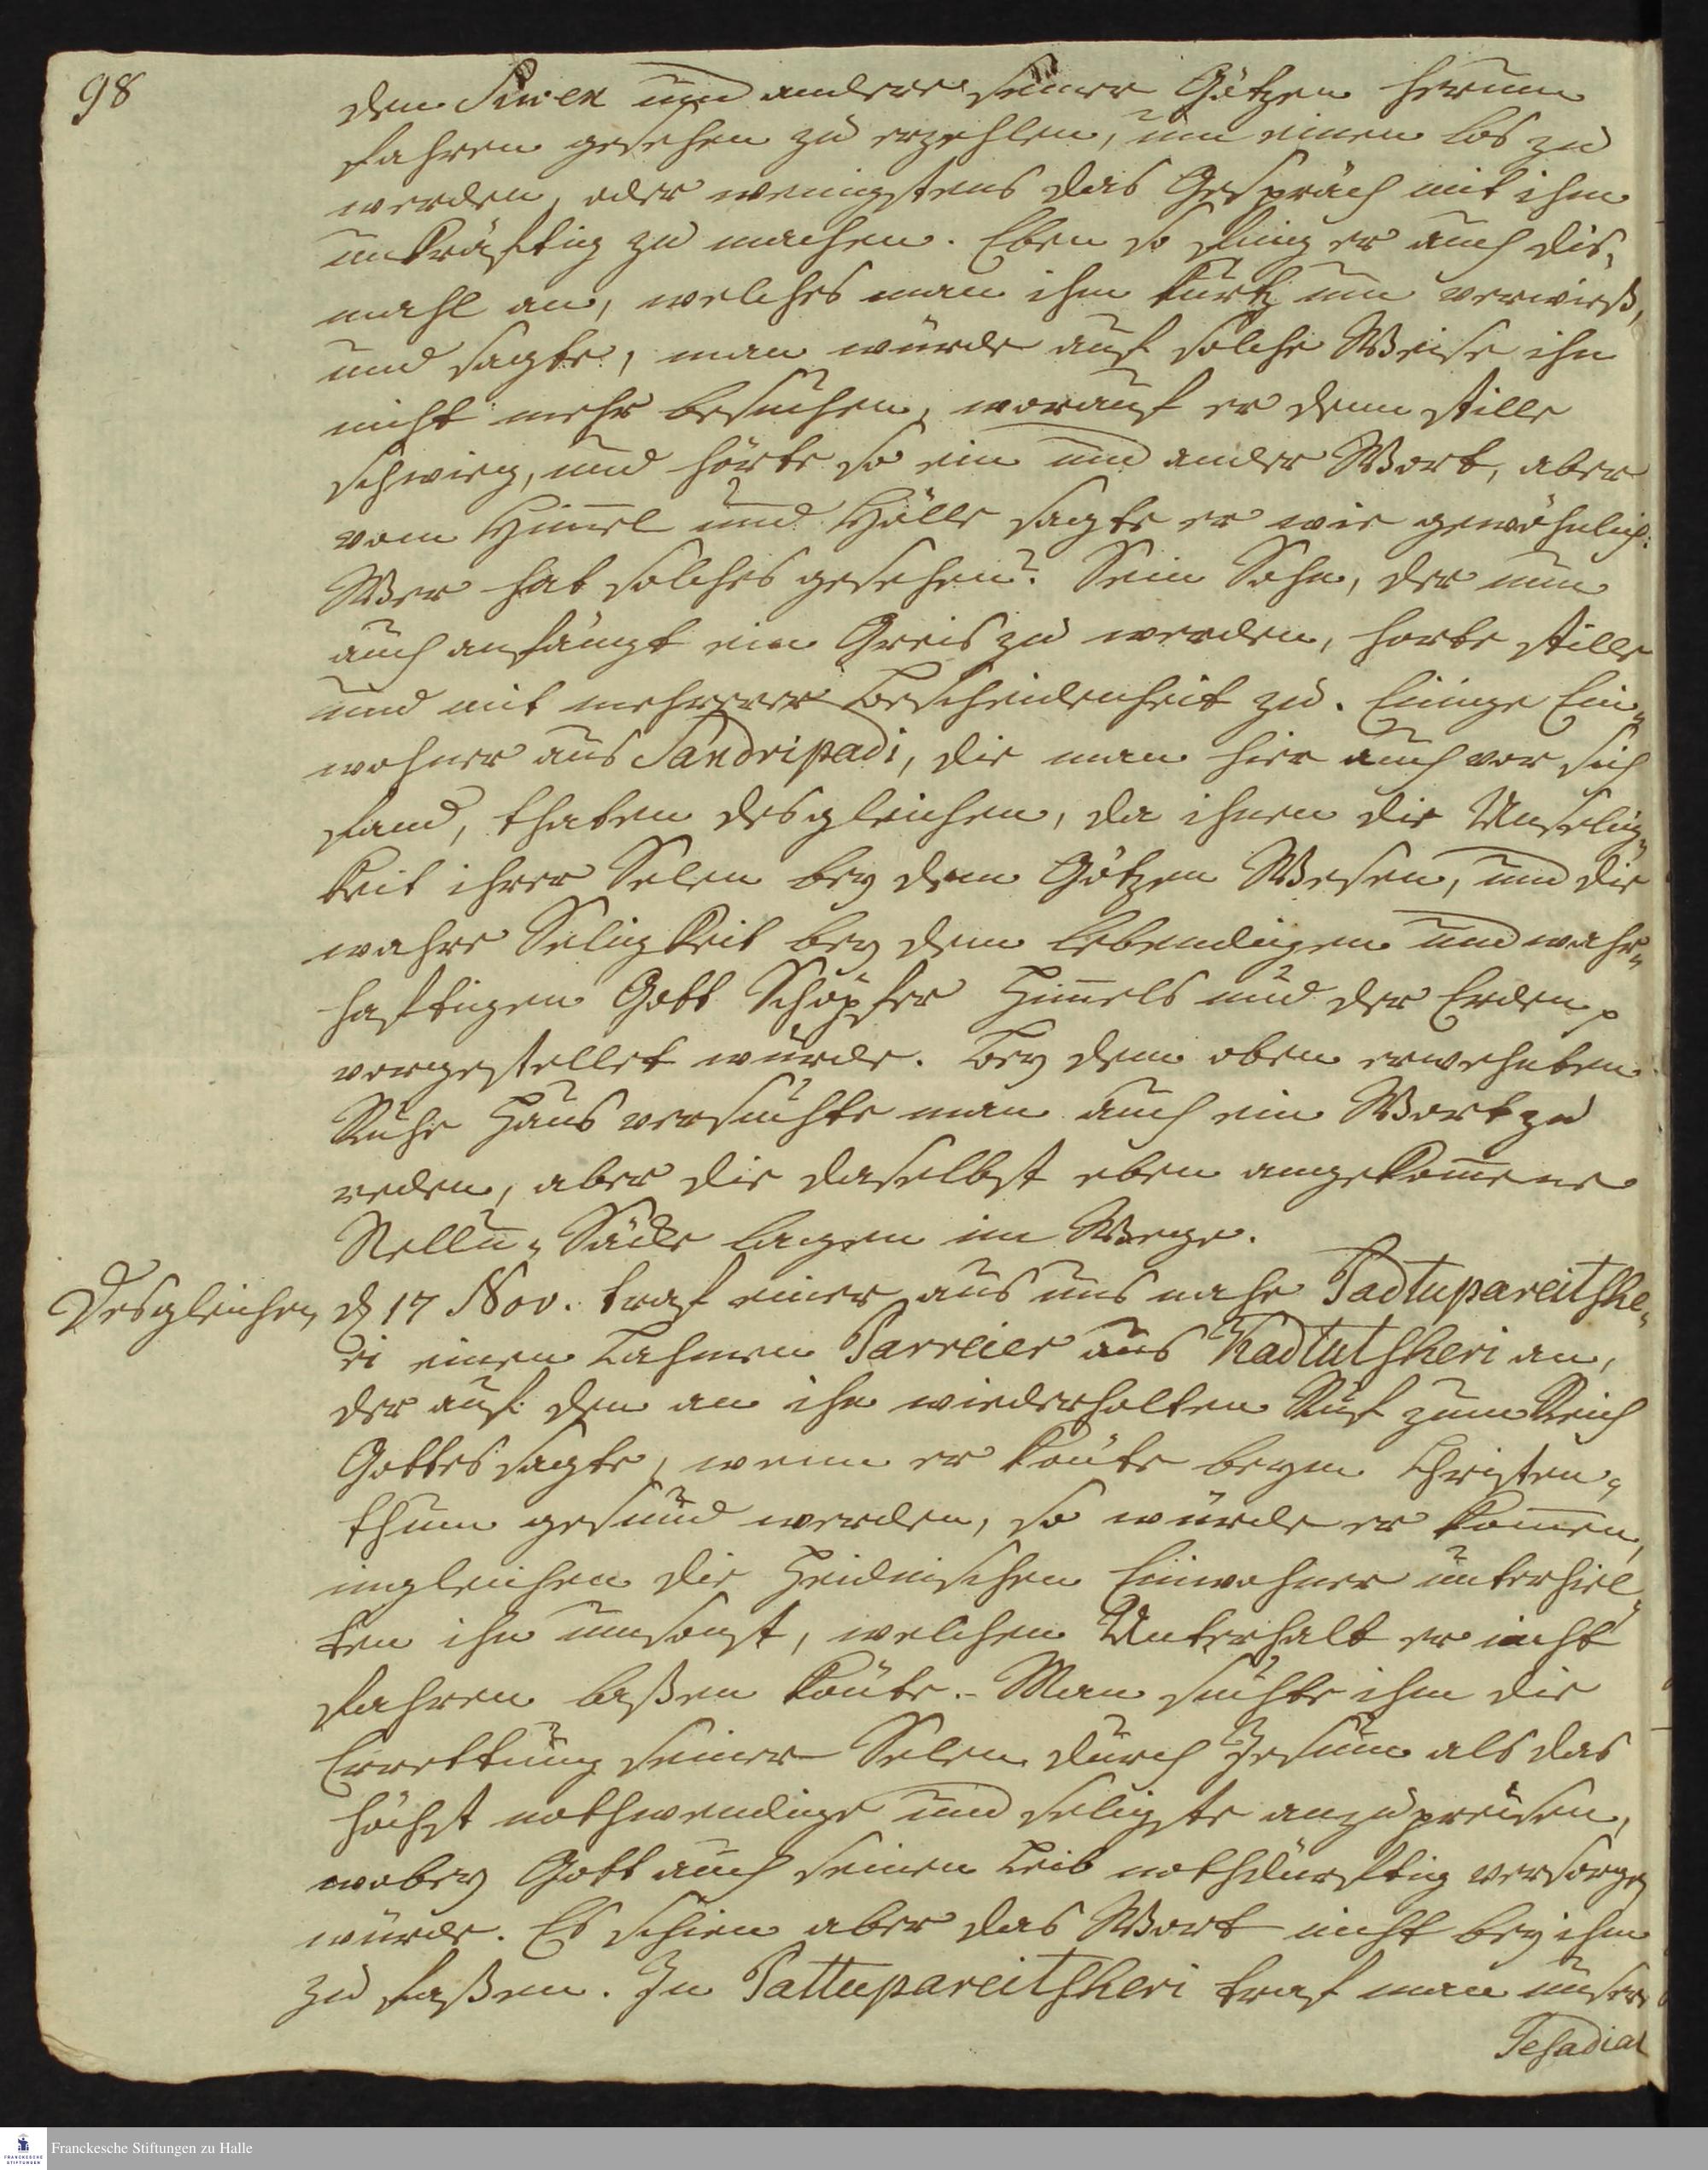 98
den Siwen und andere seiner Götzen herum
fahren gesehen zu erzehlen, um einen los zu
werden, oder wenigstens das Gespräch mit ihm
unkräftig zu machen. Eben so fing er auch dis„
mahl an, welches man ihm kurtz um verwieß,
und sagte, man würde auf solche Weise ihn
nicht mehr besuchen, worauf er denn stille
schwieg, und hörte so ein und ander Wort, aber
vom Him̄el und Hölle sagte er wie gewöhnlich:
Wer hat solches gesehen? Sein Sohn, der nun
auch anfängt ein Greis zu werden, horte stille
und mit mehrerer Bescheidenheit zu. Einige Ein„
wohner aus Sandripadi, die man hier auch vor sich
fand, thaten desgleichen, da ihnen die Unselig„
keit ihrer Selen bey dem Götzen Wesen, und die
wahre Seligkeit bey dem lebendigen und wahr„
haftigen Gott Schöpfer Him̄els und der Erden
vorgestellet wurde. Bey dem oben erwehnten
Ruhe Haus versuchte man auch ein Wort zu
reden, aber die daselbst eben angekom̄ene
Nellu„ Säcke lagen im Wege.
Desgleichen
d 17 Nov. traf einer aus uns nahe Padtupareitshe„
ri einen Lahmen Parreier aus Kadtutsheri an,
der auf den an ihn wiederholten Ruf zum Reich
Gottes sagte, wenn er kön̄te beym Christen„
thum gesund werden, so würde er kom̄en,
imgleichen die Heidnischen Einwohner unterhiel„
ten ihn umsonst, welchen Unterhalt er nicht
fahren laßen kön̄te. Man suchte ihm die
Errettung seiner Selen durch Jesum als das
höchst nothwendige und seligste anzupreisen,
wobey Gott auch seinen Leib nothdürftig versorgen
würde. Es schien aber das Wort nicht bey ihm
zu faßen. In Pattupareitsheri traf man unsere
Tesadial
Franckesche Stiftungen zu Halle
FRANCKESCHE
STIFTUNGEN